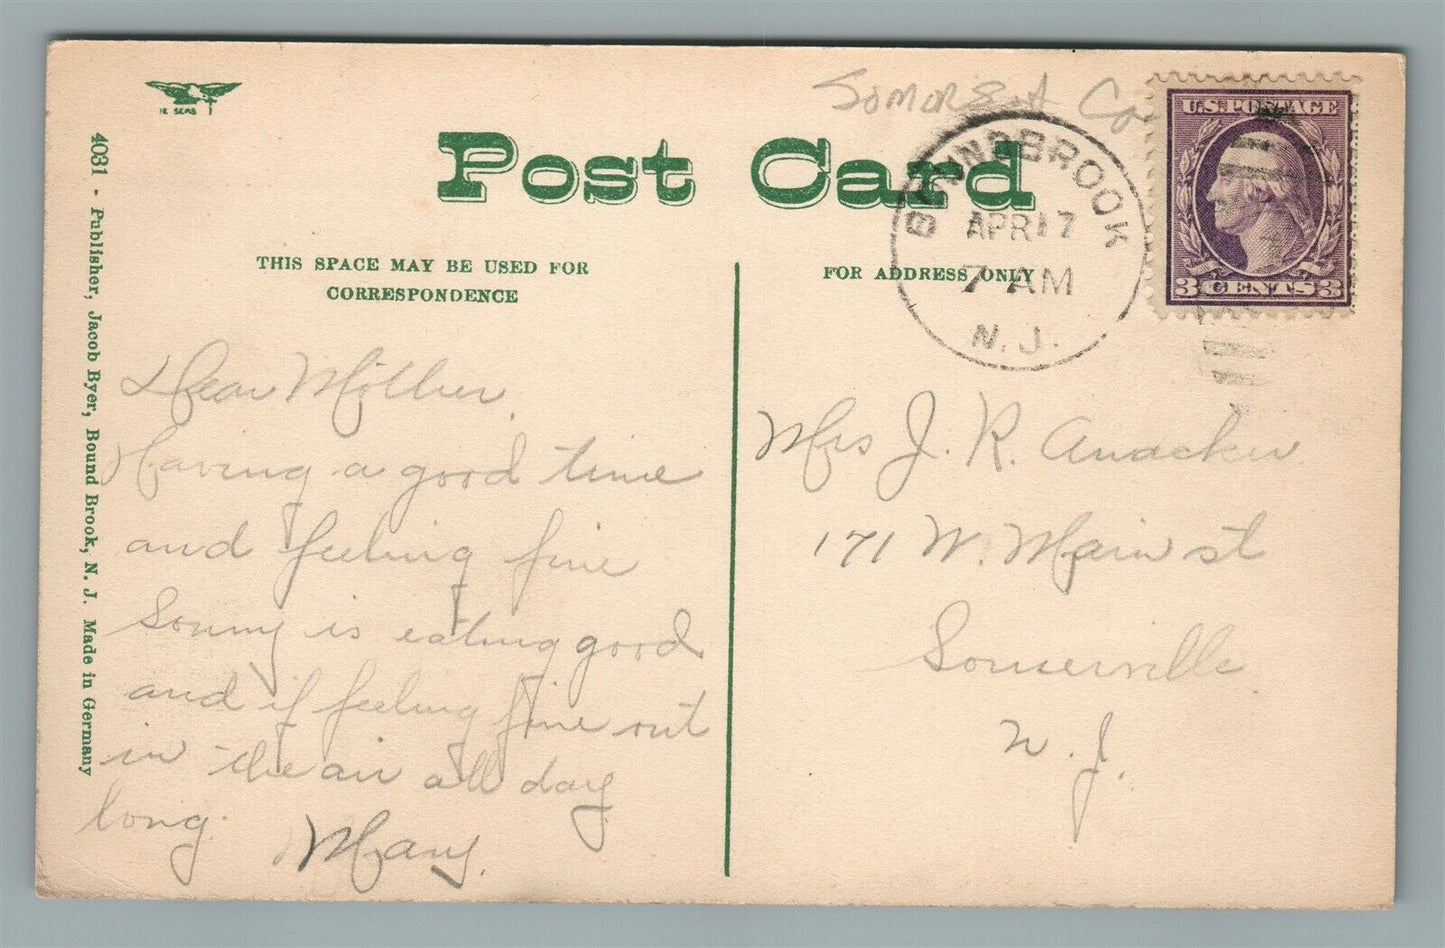 Somerset Co
Post Card
THIS SPACE MAY BE USED FOR
CORRESPONDENCE
FOR ADDRESS ONLY
BOUNDBROOK
APR 17
7 AM
N.J.
U.S. POSTAGE
3 CENTS 3
4031 - Publisher, Jacob Byer, Bound Brook, N. J. Made in Germany
Dear Mother,
Having a good time
and feeling fine
Sonny is eating good
and if feeling fine out
in the air all day
long.
Mary.
Mrs J. R. Anacker
171 W. Main st
Somerville
N. J.